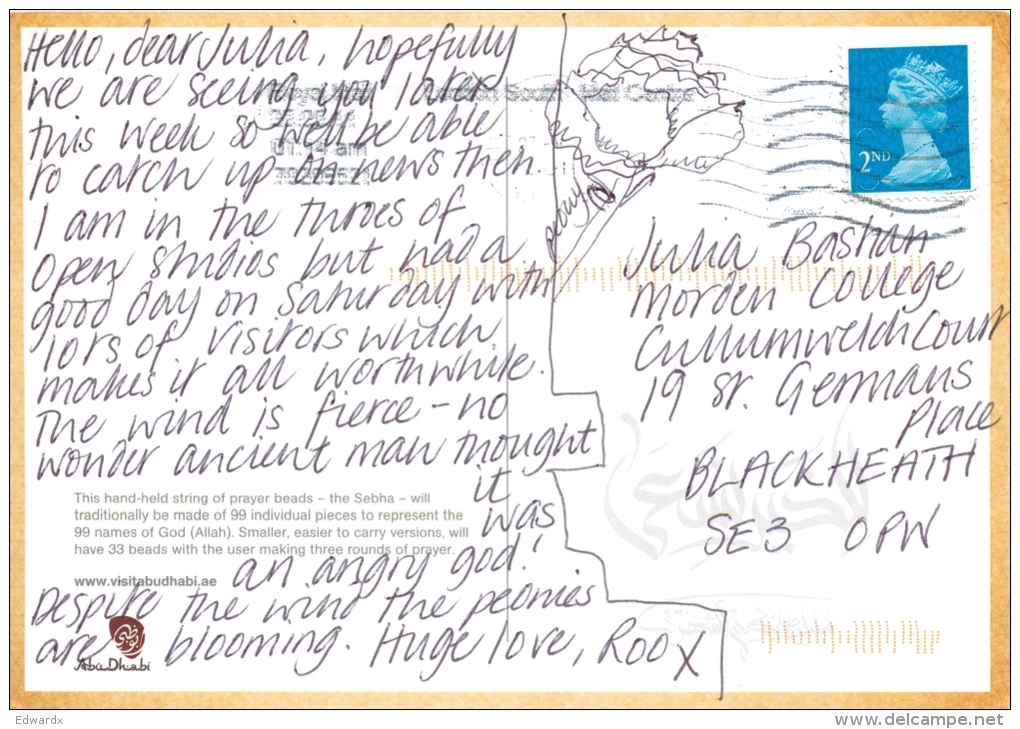 Hello, dear Julia, hopefully
we are seeing you later
this week so we'll be able
to catch up on news then.
I am in the throes of
open studios but had a
good day on Saturday with
lots of visitors which
makes it all worthwhile.
The wind is fierce – no
wonder ancient man thought
it
was
an angry god!
Despite the wind the peonies
are blooming. Huge love, Roo X
peony
2ND
Julia Bastian
Morden College
Cullum Welch Court
19 St. Germans
Place
BLACKHEATH
SE3 0PW
This hand-held string of prayer beads – the Sebha – will
traditionally be made of 99 individual pieces to represent the
99 names of God (Allah). Smaller, easier to carry versions, will
have 33 beads with the user making three rounds of prayer.
www.visitabudhabi.ae
أبوظبي
Abu Dhabi
Edwardx
www.delcampe.net